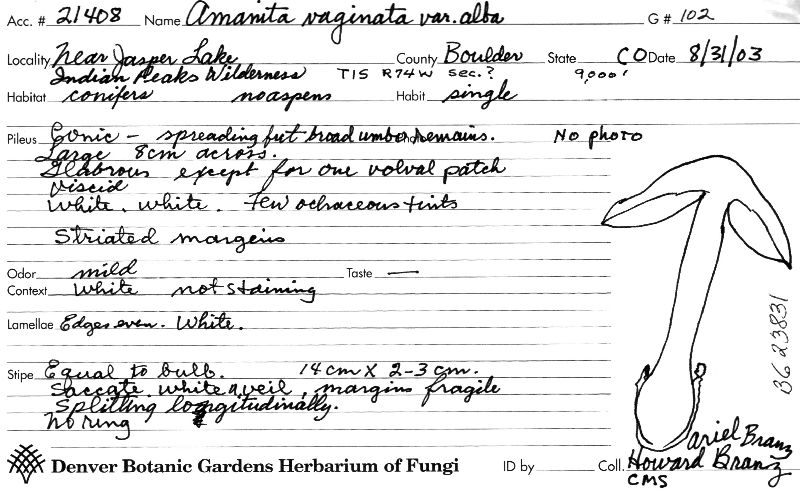 Acc. # 21408 Name Amanita vaginata var. alba G# 102
Locality Near Jasper Lake County Boulder State CO Date 8/31/03
Indian Peaks Wilderness T1S R74W sec.? 9,000'
Habitat conifers no aspens Habit single
Pileus Conic - spreading but broad umbo remains. No photo
Large 8cm across.
Glabrous except for one volval patch
Viscid
White. white. Few ochraceous tints
Striated margins
Odor mild Taste —
Context White not staining
Lamellae Edges even. White.
Stipe Equal to bulb. 14cm X 2-3 cm.
Saccate white veil, margins fragile
Splitting longitudinally.
No ring
BG 23831
Denver Botanic Gardens Herbarium of Fungi ID by Coll. Ariel Branz
Howard Branz
CMS